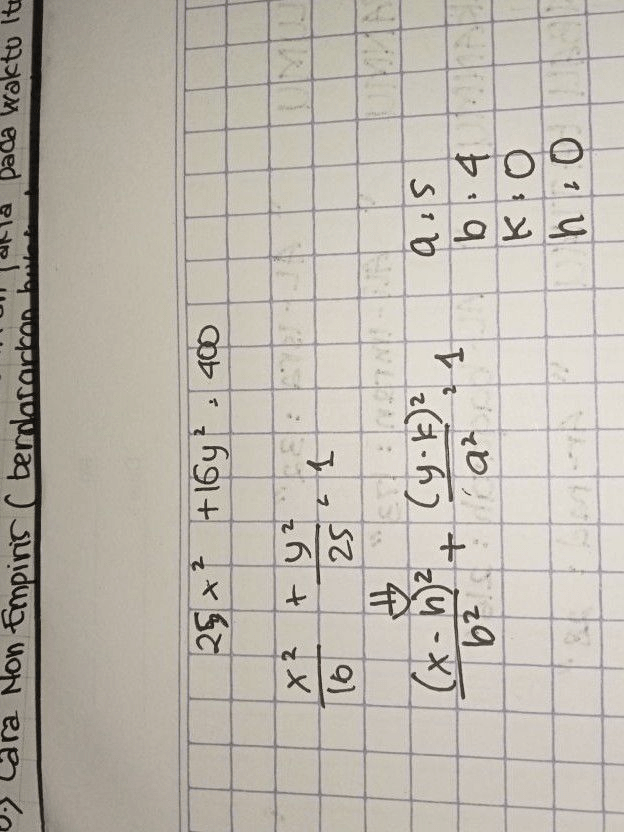 Cara Non Empiris (berdasarkan
pada waktu
25x² + 16y² = 400
x²/16 + y²/25 = 1
⇓
(x - h)²/b² + (y - k)²/a² = 1
a = 5
b = 4
k = 0
h = 0